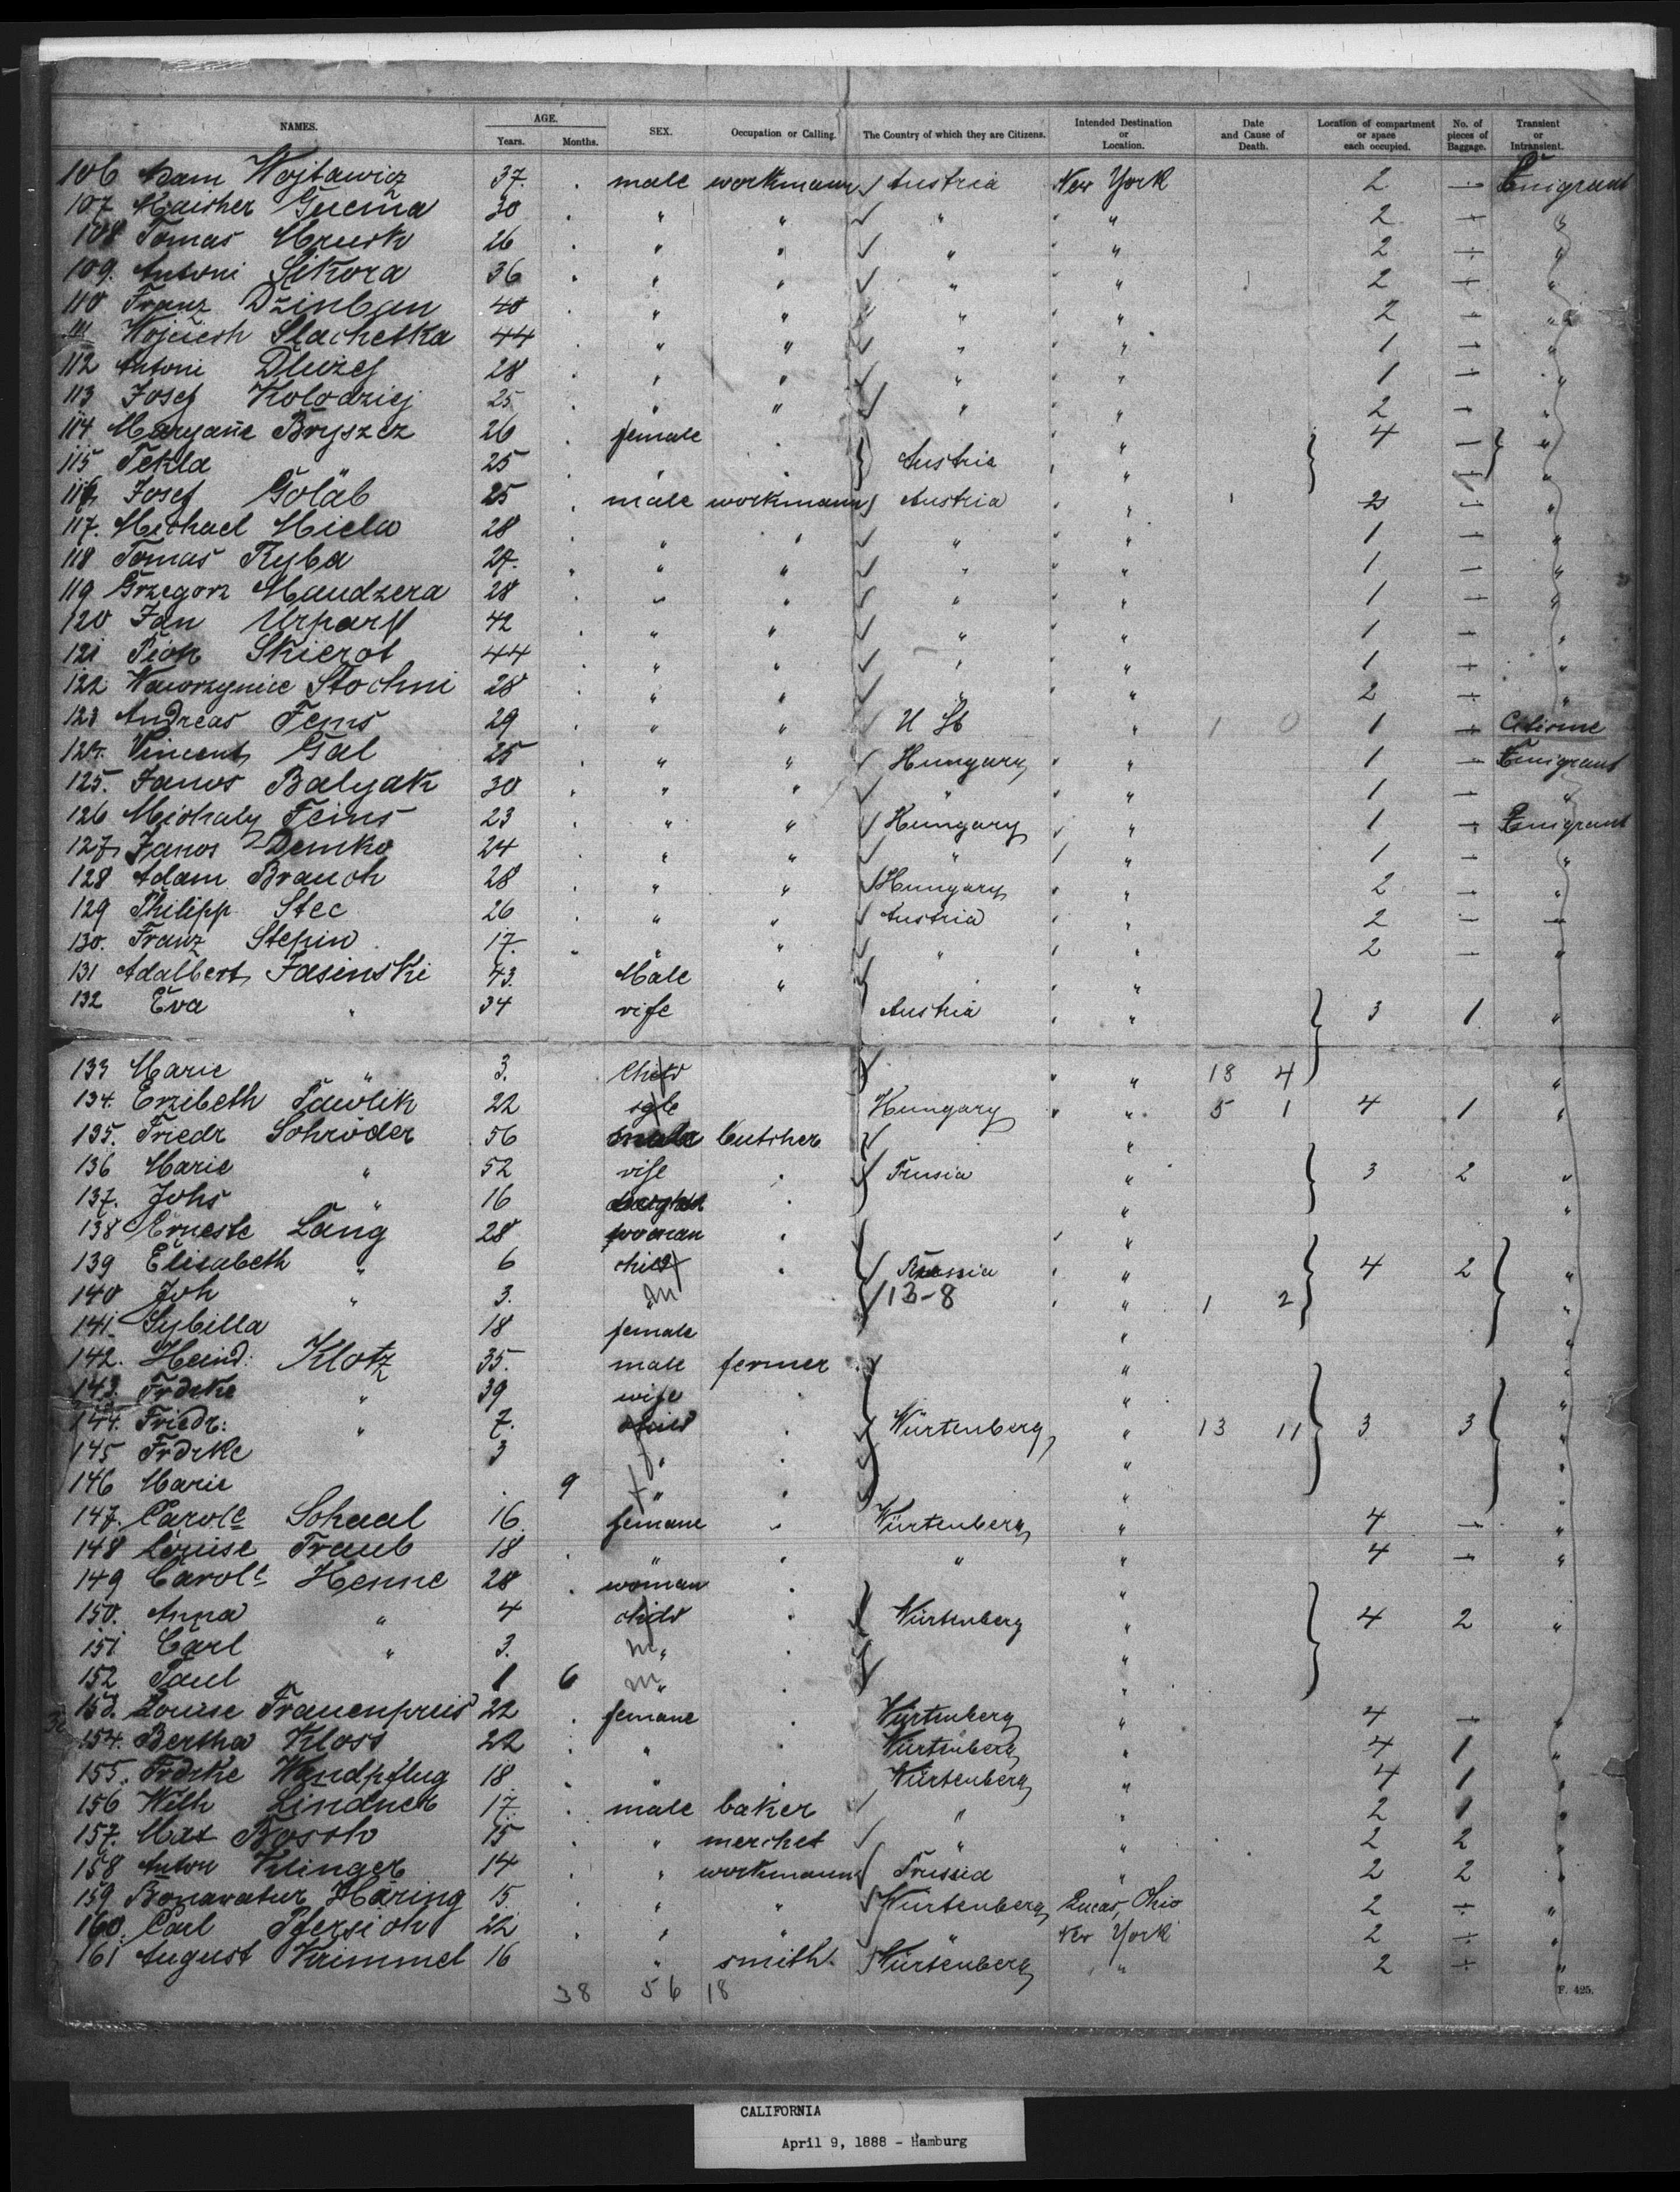 NAMES. AGE. Years. Months. SEX. Occupation or Calling. The Country of which they are Citizens. Intended Destination or Location. Date and Cause of Death. Location of compartment or space each occupied. No. of pieces of Baggage. Transient or Intransient.
106 Adam Wojtawicz 37. male workmann Austria New York 2 Emigrant
107 30 " " " " 2 "
108 Tomas Mrusk 26 " " " " 2 "
109. Antoni Sikora 36 " " " " 2 "
110 Franz 40 " " " " 2 "
111 Wojciech Slachetka 44 " " " " 1 "
112 Antoni 28 " " " " 1 "
113 Josef Kolodziej 25 " " " " 2 "
114 Maryane Bryszcz 26 female " 4 "
115 Tekla " 25 " Austria " "
116 Josef Golab 25 male workmann Austria " 2 "
117. Michael Miela 28 " " " " 1 "
118 Tomas Ryba 27. " " " " 1 "
119 Grzegorz Maudzera 28 " " " " 1 "
120 Jan 42 " " " " 1 "
121 Piotr Skierot 44 " " " " 1 "
122 Wawrzynice Stochni 28 " " " " 2 "
123 Andreas Fems 29 " " U St " 1 0 1
124. Vincent Gal 25 " " Hungary " 1 Emigrant
125. Janos Balyak 30 " " " " 1 "
126 Michaly Feins 23 " " Hungary " 1 Emigrant
127 Janos Demko 24 " " " " 1 "
128 Adam Brauch 28 " " Hungary " 2 "
129 Philipp Stec 26 " " Austria " 2 "
130. Franz Stepin 17. " " " " 2 "
131 Adalbert Jasinski 43. Male " "
132 Eva " 34 vife Austria " 3 1 "
133 Marie " 3. Child " 18 4 "
134. Erzibeth Pawlik 22 sgle Hungary " 5 1 4 1 "
135. Friedr Schröder 56 male butcher "
136 Marie " 52 vife Prusia " 3 2 "
137. Johs " 16 " "
138 Erneste Lang 28 woman "
139 Elisabeth " 6 child " 4 2 "
140 Joh " 3. m 13-8 " 1 2 "
141. Sybilla 18 female " "
142. Heind: Klotz 35. male fermer " "
143. Frdrke " 39 wife " "
144. Friedr: " 7. child Würtenberg " 13 11 3 3 "
145 Frdrke 3 " " "
146 Marie 9 " " "
147. Carole Schaal 16 femane Würtenberg " 4 "
148 Louise Traub 18 " " " 4 "
149 Carole Henne 28 woman "
150. Anna " 4 child Würtenberg " 4 2 "
151 Carl " 3. m " "
152 Paul 1 6 m " "
153. Louise Frauenpreis 22 femane Würtenberg " 4 "
154. Bertha Kloss 22 " Würtenberg " 4 1 "
155. Frdrke Wendpflug 18 " Würtenberg " 4 1 "
156 Wilh Lindner 17 male baker " " 2 1 "
157. Max Bosch 15 " merchet " " 2 2 "
158 Anton Klinger 14 " workmann Prussia " 2 2 "
159 Bonavatur Häring 15. " " Würtenberg Lucas, Ohio 2 "
160. Carl Pfersich 22 " " " New York 2 "
161 August Krimmel 16 " smith. Würtenberg " 2 "
38 56 18
F. 425.
CALIFORNIA
April 9, 1888 - Hamburg